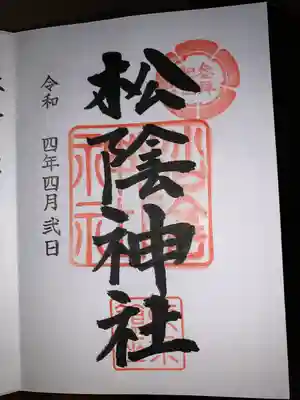 松陰神社
令和 四年四月弐日